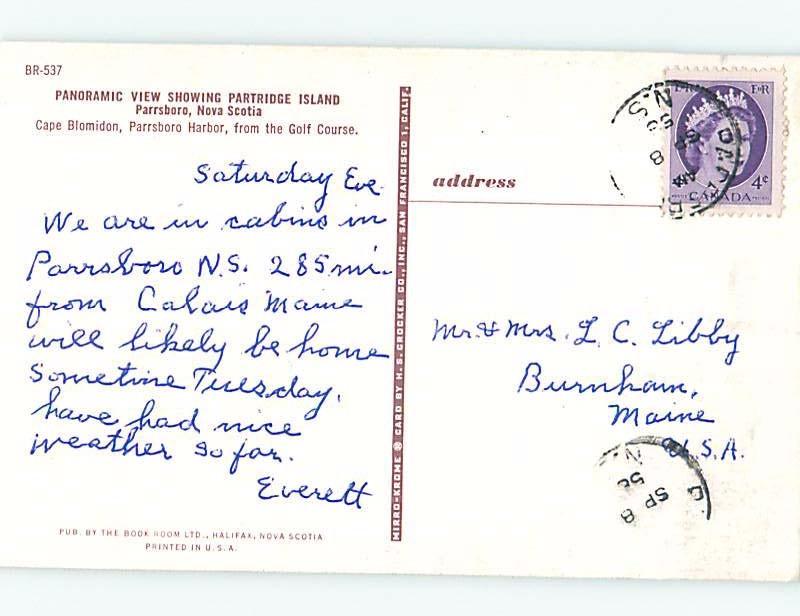 BR-537
PANORAMIC VIEW SHOWING PARTRIDGE ISLAND
Parrsboro, Nova Scotia
Cape Blomidon, Parrsboro Harbor, from the Golf Course.
Saturday Eve.
We are in cabins in
Parrsboro N.S. 285 mi.
from Calais Maine
will likely be home
Sometime Tuesday.
have had nice
weather so far.
Everett
PUB. BY THE BOOK ROOM LTD., HALIFAX, NOVA SCOTIA
PRINTED IN U.S.A.
MIRRO-KROME ® CARD BY H. S. CROCKER CO., INC., SAN FRANCISCO 1, CALIF.
address
E R
E R
4¢
CANADA
N.S.
SP 8
AM
Mr. & Mrs. L. C. Libby
Burnham,
Maine
U.S.A.
N.
SP 8